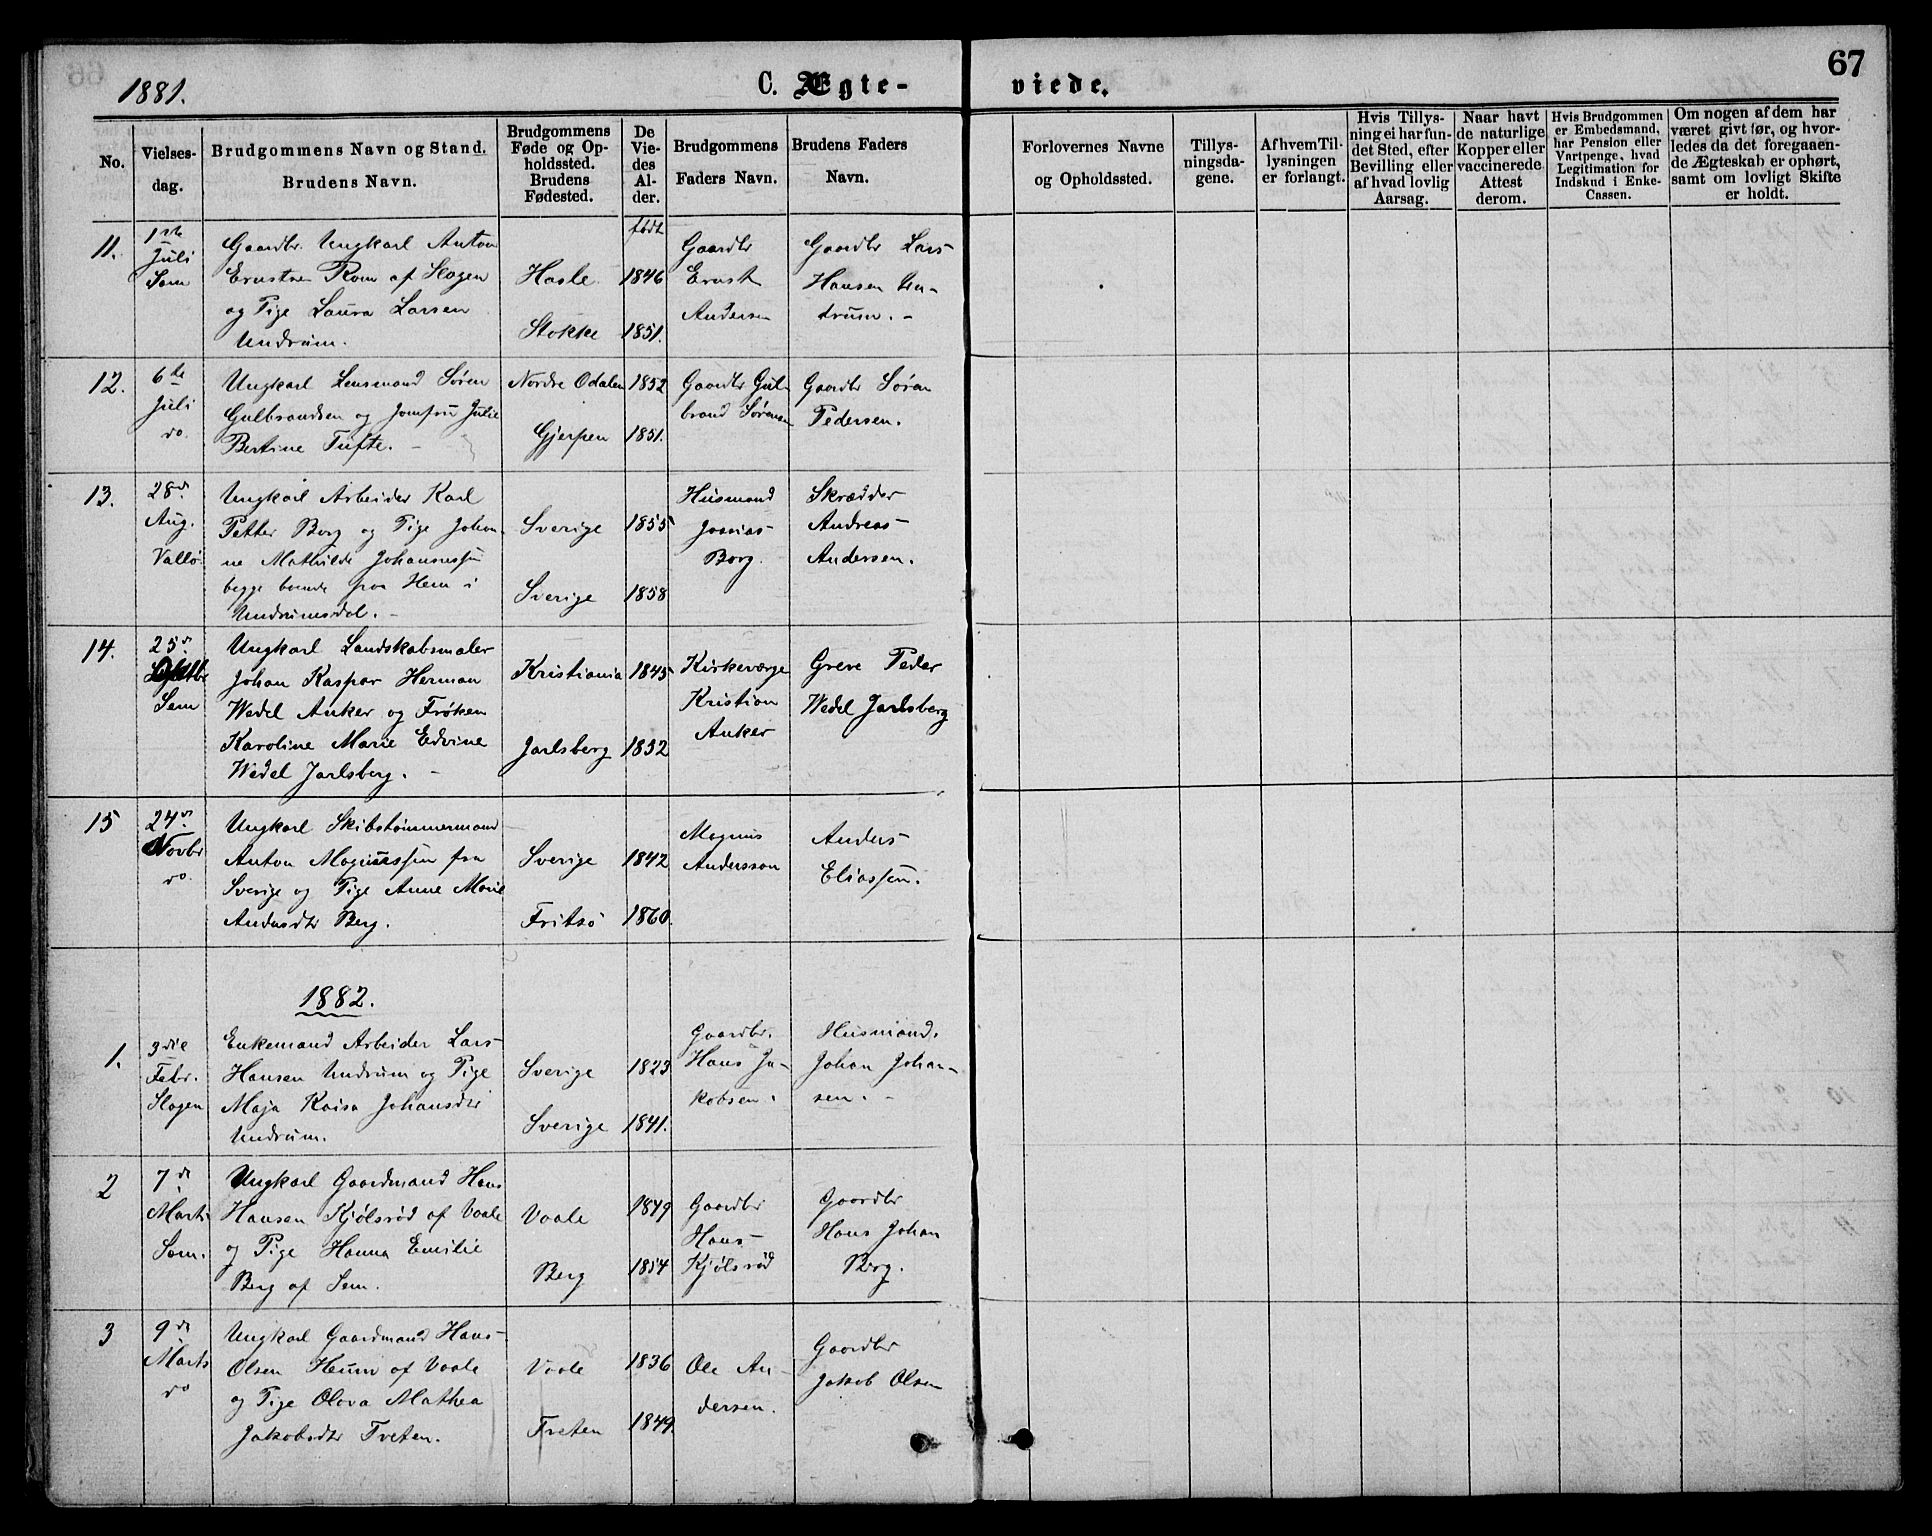 1881.
C. Ægte-
viede.
67
No.
Vielses-
dag.
Brudgommens Navn og Stand.
Brudens Navn.
Brudgommens
Føde og Op-
holdssted.
Brudens
Fødested.
De
Vie-
des
Al-
der.
Brudgommens
Faders Navn.
Brudens Faders
Navn.
Forlovernes Navne
og Opholdssted.
Tillys-
ningsda-
gene.
Af hvem Til-
lysningen
er forlangt.
Hvis Tillys-
ning ei har fun-
det Sted, efter
Bevilling eller
af hvad lovlig
Aarsag.
Naar havt
de naturlige
Kopper eller
vaccinerede
Attest
derom.
Hvis Brudgommen
er Embedsmand,
har Pension eller
Vartpenge, hvad
Legitimation for
Indskud i Enke-
Cassen.
Om nogen af dem har
været givt før, og hvor-
ledes da det foregaaen-
de Ægteskab er ophørt,
samt om lovligt Skifte
er holdt.
11.
1ste
Juli
Sem
Gaardbr. Ungkarl Anton
Ernstsen Rom af Slagen
og Pige Laura Larsen
Undrum.
Hasle
Stokke
født
1846
1851.
Gaardbr
Ernst
Andersen
Gaardbr Lars
Hansen Un-
drum. -
12.
6te
Juli
do.
Ungkarl Lensmand Søren
Gulbrandsen og Jomfru Julie
Bertine Tufte. -
Nordre Odalen
Gjerpen
1852
1851.
Gaardbr Gul-
brand Sørensen
Gaardbr Søren
Pedersen.
13.
28de
Aug.
Vallø
Ungkarl Arbeider Karl
Petter Borg og Pige Johan-
ne Mathilde Johannessen
begge boende paa Hem i
Undrumsdal. -
Sverige
Sverige
1855
1858
Husmand
Jonas
Borg.
Skrædder
Andreas
Andersen.
14.
25de
Septbr
Sem
Ungkarl Landskabsmaler
Johan Kaspar Herman
Wedel Anker og Frøken
Karoline Marie Edvine
Wedel Jarlsberg. -
Kristiania
Jarlsberg
1845
1832
Kirkeværge
Kristian
Anker
Greve Peder
Wedel Jarlsberg
15
24de
Novbr
do.
Ungkarl Skibstømmermand
Anton Magnussen fra
Sverige og Pige Anne Marie
Andersdtr Berg.
Sverige
Fritsø
1842
1860.
Magnus
Andersson
Anders
Eliassen.
1882.
1.
3die
Febr.
Slagen
Enkemand Arbeider Lars
Hansen Undrum og Pige
Maja Kaisa Johansdtr
Undrum.
Sverige
Sverige
1823
1841.
Gaardbr.
Hans Ja-
kobsen.
Husmand.
Johan Johan-
sen. -
2
7de
Marts
Sem.
Ungkarl Gaardmand Hans
Hansen Kjølsrød af Vaale
og Pige Hanna Emilie
Berg af Sem.
Vaale
Berg
1849
1854
Gaardbr
Hans
Kjølsrød
Gaardbr
Hans Johan
Berg.
3
9de
Marts
do
Ungkarl Gaardmand Hans
Olsen Heum af Vaale
og Pige Olava Mathea
Jakobsdtr Tveten.
Vaale
Tveten
1836
1849.
Ole An-
dersen.
Gaardbr
Jakob Olsen